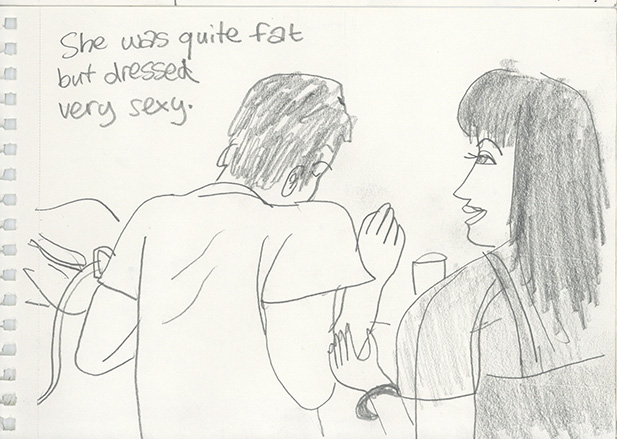 She was quite fat
but dressed
very sexy.